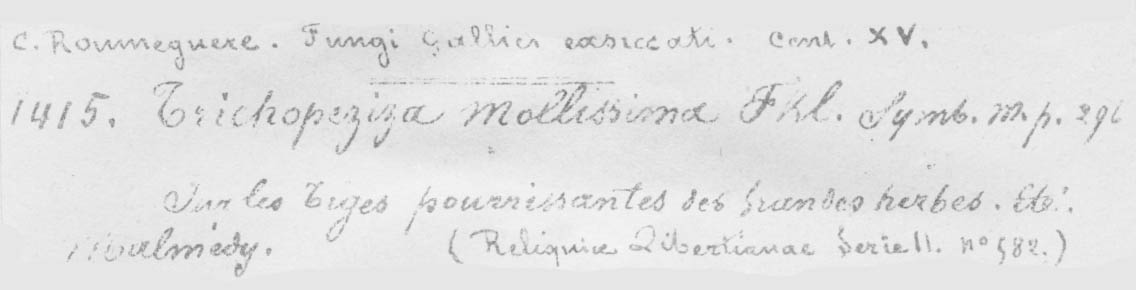 C. Roumeguere. Fungi Gallici exsiccati. Cent. XV.
1415. Trichopeziza mollissima Fkl. Symb. M. p. 296
Sur les tiges pourrissantes des grandes herbes. Eté.
Malmédy. (Reliquiæ Libertianae Serie II. no 582.)